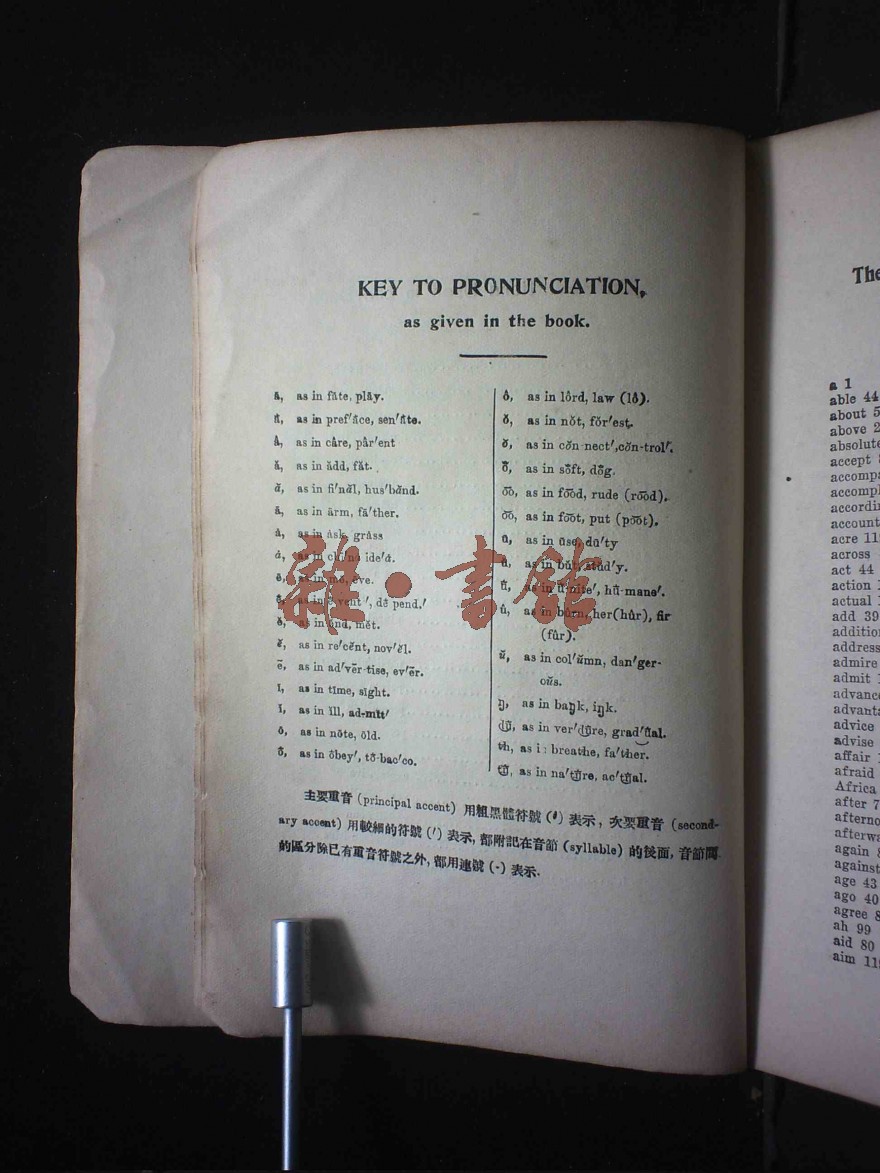 KEY TO PRONUNCIATION,
as given in the book.
ā, as in fāte, plāy.
as in pref′āce, sen′āte.
â, as in câre, pâr′ent
ă, as in ădd, făt.
as in fi′năl, hus′bănd.
ä, as in ärm, fä′ther.
ȧ, as in ȧsk, grȧss
ȧ, as in chi′nȧ ide′ȧ.
ē, as in mē, ēve.
as in ê-vent′, dê pend.′
ĕ, as in ĕnd, mĕt.
ĕ, as in re′cĕnt, nov′ĕl.
ẽ, as in ad′vẽr-tise, ev′ẽr.
ī, as in tīme, sīght.
ĭ, as in ĭll, ad-mĭt′
ō, as in nōte, ōld.
ô, as in ôbey′, tô-bac′co.
ô, as in lôrd, law (lô).
ŏ, as in nŏt, fŏr′est.
ŏ, as in cŏn-nect′, cŏn-trol′.
as in soft, dog.
o͞o, as in fo͞od, rude (ro͞od).
o͝o, as in fo͝ot, put (po͝ot).
ū, as in ūse, dū′ty
ŭ, as in bŭt, stŭd′y.
û, as in û-nite′, hû-mane′.
û, as in bûrn, her(hûr), fir
(fûr).
ŭ, as in col′ŭmn, dan′ger-
oŭs.
ŋ, as in baŋk, iŋk.
as in ver′dure, grad′ual.
th, as in breathe, fa′ther.
as in na′ture, ac′tual.
主要重音 (principal accent) 用粗黑體符號 (′) 表示, 次要重音 (second-
ary accent) 用較細的符號 (′) 表示, 都附記在音節 (syllable) 的後面, 音節間
的區分除已有重音符號之外, 都用連號 (-) 表示.
雜·書館
The
a 1
able 44
about 5
above 2
absolute
accept
accompa
accompl
accordin
account
acre 11
across
act 44
action
actual
add 39
addition
address
admire
admit
advance
advanta
advice
advise
affair
afraid
Africa
after 7
afterno
afterwa
again
against
age 43
ago 40
agree 8
ah 99
aid 80
aim 11